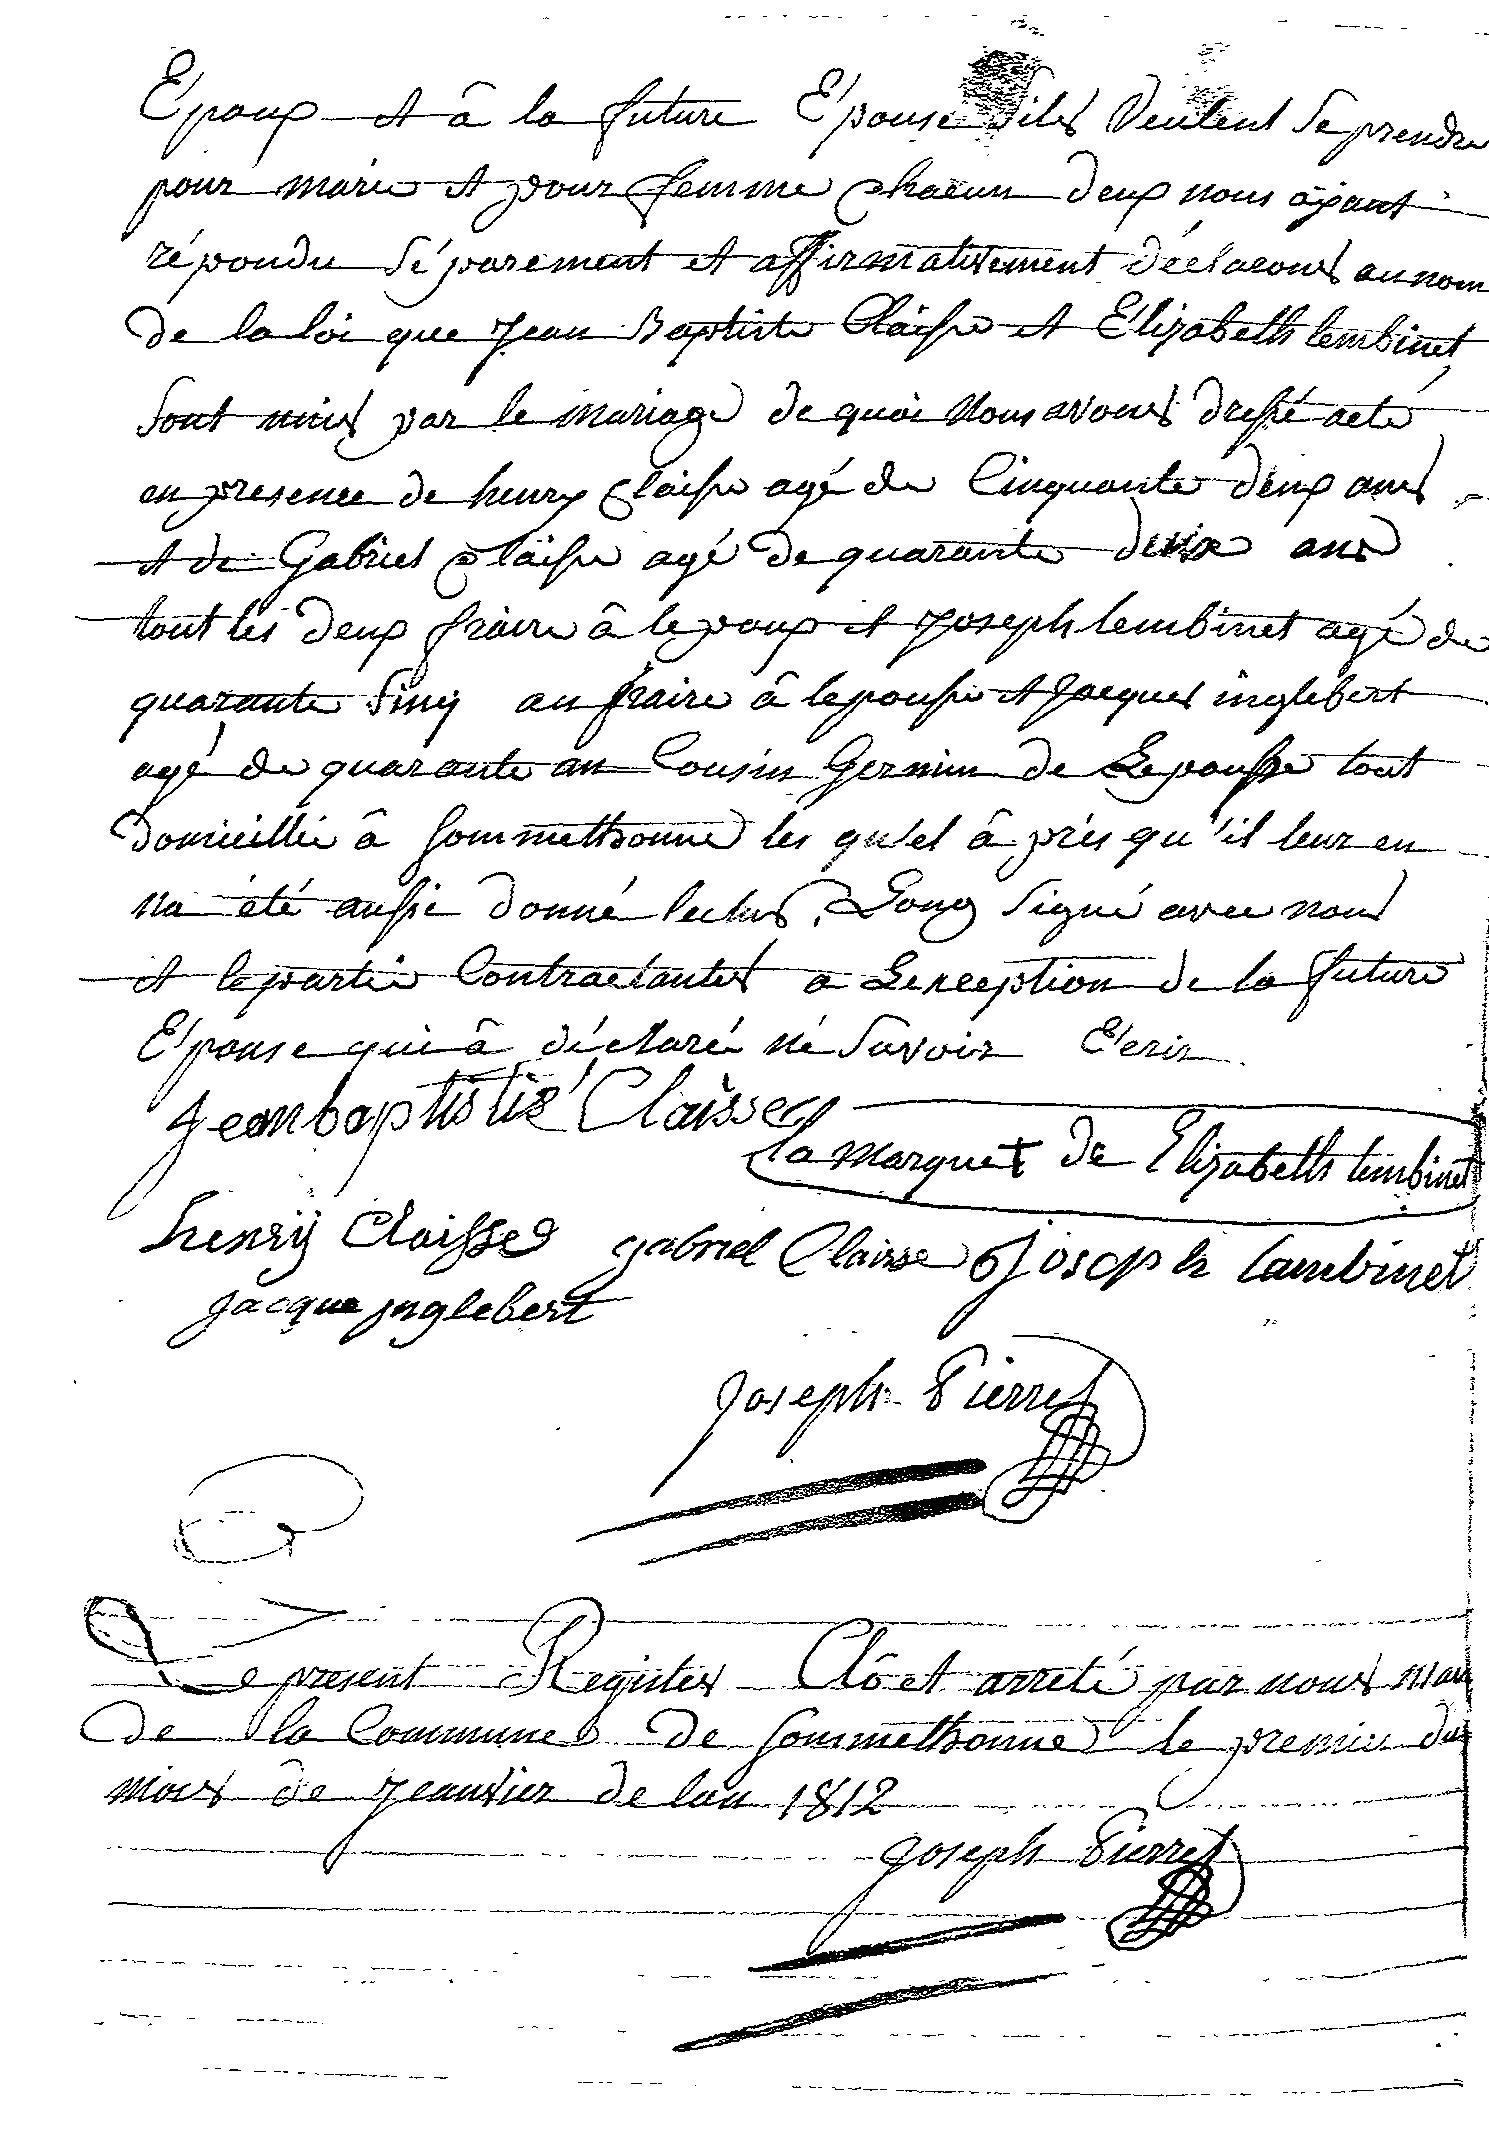 Epoux et â la future Epouse sils Veulent Se prendre
pour marie et pour femme chacun deux nous aÿant
répondu séparement et affirmativement déclarons au nom
de la loi que Jean Baptiste Claisse et Elizabeth lembinet
sont unis par le mariage de quoi Nous avons dressé acte
en presence de henry Claisse agé de Cinquante deux ans
et de Gabriel Claisse agé de quarante deux ans
tout les deux fraire â lepoux et Joseph lembinet agé de
quarante sinq an fraire â lepousse et Jacques inglebert
agé de quarante an Cousin Germin de Lepousse tout
domicillié â Sommethonne les qu'el â près qu'il leur en
na été aussi donné lectus, Long signé avec nous
et le partie Contractantes a Lexception de la future
Epouse qui â déclaré né Savoir Ecrir
Jeanbaptistte Claisse
la marque + de Elizabeth lembinet
henrÿ Claisse gabriel Claisse Joseph lambinet
jacque jnglebert
Joseph Pierret
Le present Registes Clô et arreté par nous maire
de la Commune de Sommethonne le premier du
mois de Jeanvier de lan 1812
Joseph Pierret